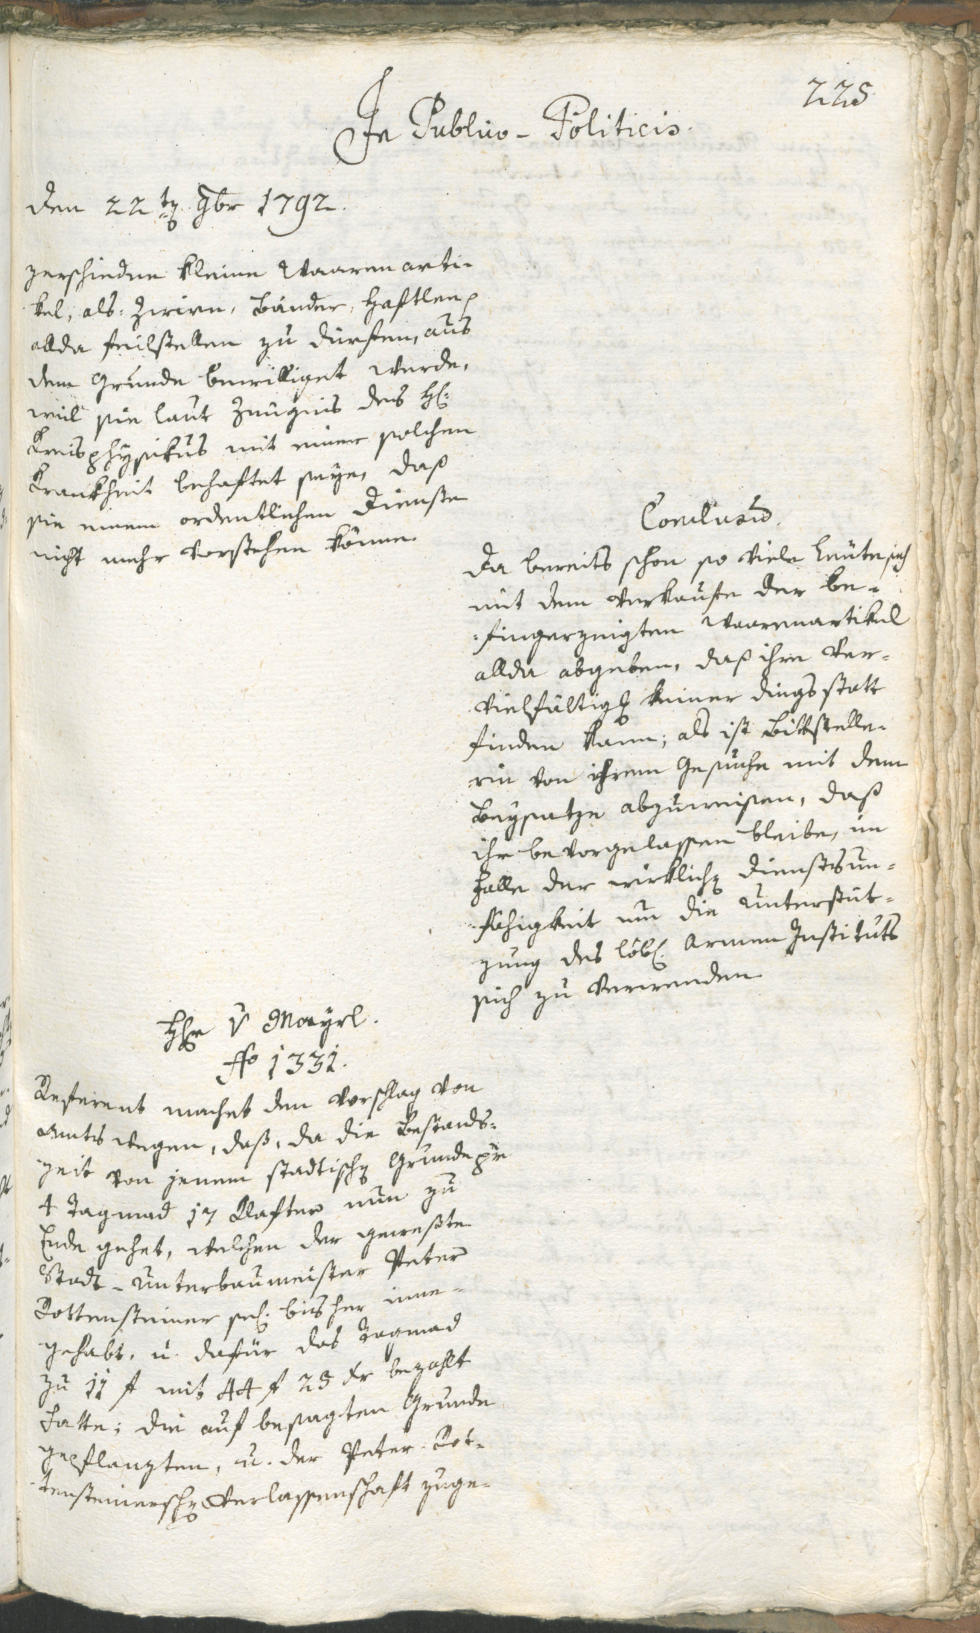 225
In Publico-Politicis.
den 22 t. 9br 1792.
zerschiedne kleine Waarenarti-
kel, als: Zwirn, Bänder, Haftlen
allda feilstellen zu därfen, aus
dem Grunde bewilliget werde,
weil sie laut Zeugnis des H:
Kreisphysikus mit einer solchen
Krankheit behaftet seye, daß
sie einem ordentlichen Dienste
nicht mehr vorstehen könne.
Conclusum.
Da bereits schon so viele Leute sich
mit dem Verkaufe der be-
fingerzeigten Waarenartikel
allda abgeben, daß ihre Ver-
vielfältig. keiner dings statt
finden kann; als ist Bittstelle-
rin von ihrem Gesuche mit dem
Beysatze abzuweisen, daß
ihr bevorgelassen bleibe, im
Falle der wirklich. Dienstsun-
fähigkeit um die Unterstüt-
zung des löbl. Armen Instituts
sich zu verwenden.
Hr v Mayrl.
No 1331.
Referent machet den Vorschlag von
Amts wegen, daß, da die Bestands-
zeit von jenem stadtisch. Grunde per
4 Tagmad 17 Klafter nun zu
Ende gehet, welchen der geweßte
Stadt-Unterbaumeister Peter
Rottensteiner sel. bisher inne-
gehabt, u. dafür das Tagmad
zu 11 f mit 44 f 25 kr bezahlt
hatte; die auf besagten Grunde
gepflanzten, u. der Peter Rot-
tensteinersch. Verlassenschaft zuge-